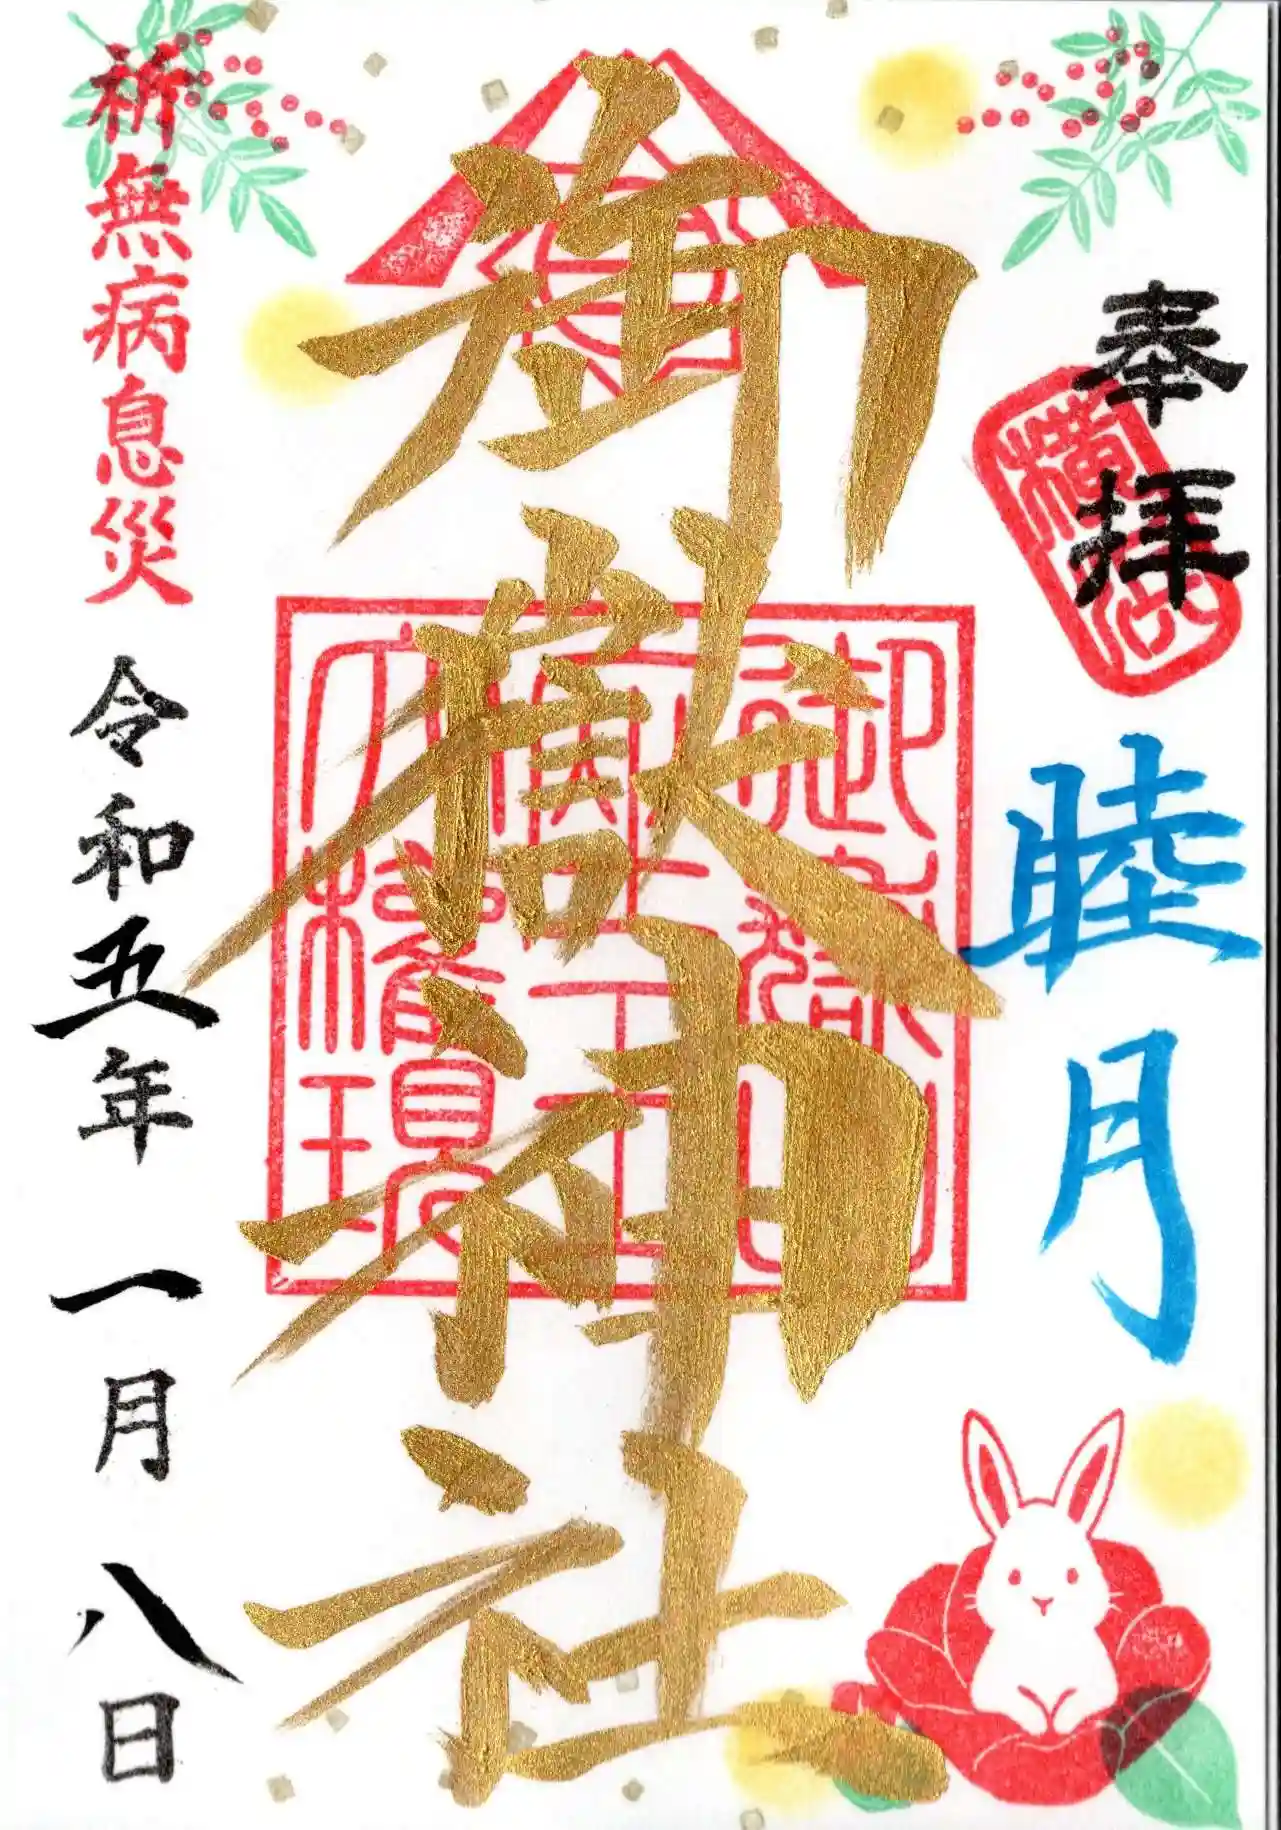 奉拝
睦月
御嶽神社
祈無病息災
令和五年 一月 八日